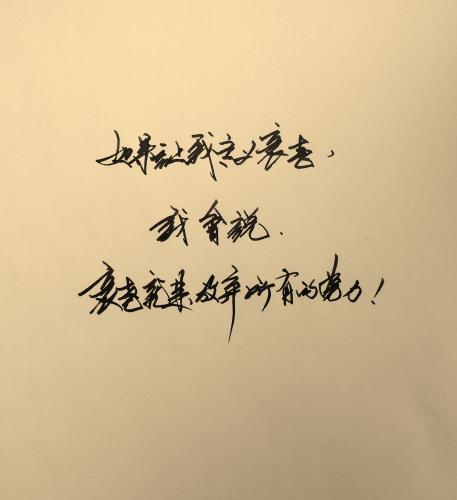 如果让我定义衰老，
我會説.
衰老就是放弃所有的努力！